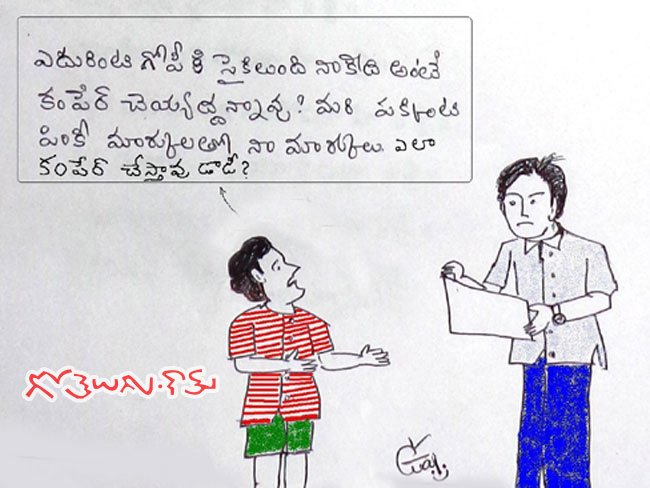 ఎదురింటి గోపీకి సైకిలుంది నాకేది అంటే
కంపేర్ చెయ్యొద్దన్నావు? మరి పక్కింటి
పింకీ మార్కులతో నా మార్కులు ఎలా
కంపేర్ చేస్తావు డాడీ?
గోతెలుగు.కామ్